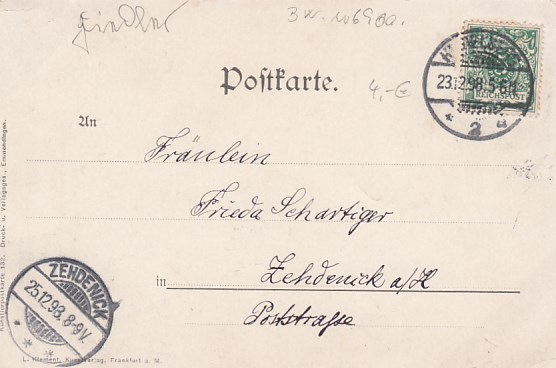 Fiedler
Postkarte.
4,-€
REICHSPOST
23.12.98. 5-6N.
* 2 a
An
Fräulein
Frieda Schartiger
in Zehdenick a/H
Poststrasse
ZEHDENICK
25.12.98. 8-9V.
* * *
Künstlerpostkarte Druck- u. Verlagsges., Emmendingen.
L. Klement, Kunstverlag, Frankfurt a. M.